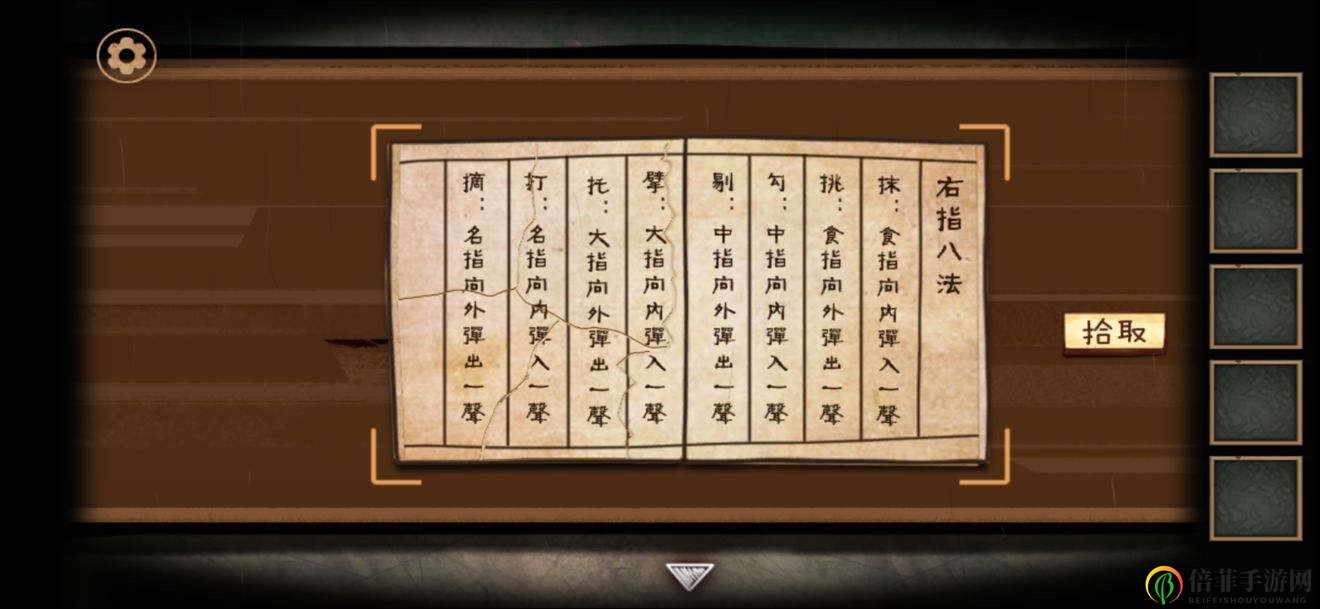 右指八法
抹：食指向內彈入一聲
挑：食指向外彈出一聲
勾：中指向內彈入一聲
剔：中指向外彈出一聲
擘：大指向內彈入一聲
托：大指向外彈出一聲
打：名指向內彈入一聲
摘：名指向外彈出一聲
拾取
倍菲手游网
BEIFEISHOUYOUWANG